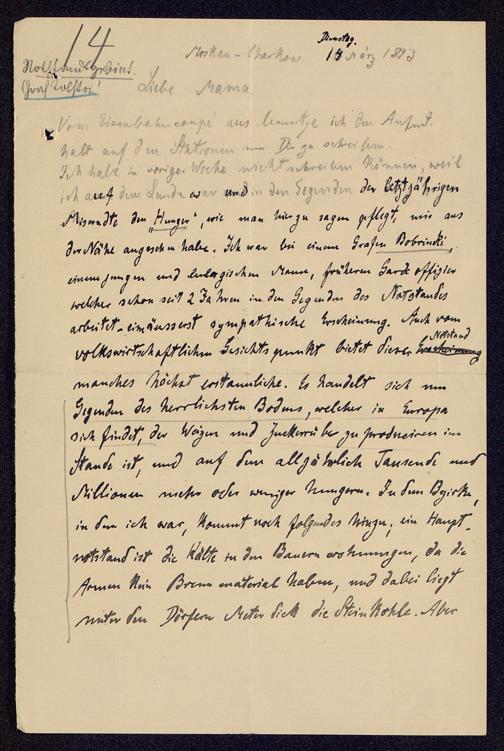 14
Dienstag.
Moskau - Charkow. 14 März 1893
Notstandsgebiet.
Graf Tolstoi!
Liebe Mama.
Vom Eisenbahncoupé aus benutze ich den Aufent-
halt auf den Stationen um Dir zu schreiben.
Ich habe in voriger Woche nicht schreiben können, weil
ich auf dem Lande war und in den Gegenden der letztjährigen
Missernte den „Hunger", wie man hier zu sagen pflegt, mir aus
der Nähe angesehen habe. Ich war bei einem Grafen Bobrinski,
einem jungen und energischen Manne, früheren Garde offizier
welcher schon seit 2 Jahren in den Gegenden des Notstandes
arbeitet - eine äusserst sympathische Erscheinung. Auch vom
volkswirtschaftlichen Gesichtspunkt bietet dieser Notstand
manches höchst erstaunliche. Es handelt sich um
Gegenden des herrlichsten Bodens, welcher in Europa
sich findet, der Weizen und Zuckerrüben zu produciren im
Stande ist, und auf dem alljährlich Tausende und
Millionen mehr oder weniger hungern. In dem Bezirke,
in dem ich war, kommt noch folgendes hinzu, ein Haupt-
notstand ist die Kälte in den Bauernwohnungen, da die
Armen kein Brennmaterial haben, und dabei liegt
unter den Dörfern Meter dick die Steinkohle. Aber